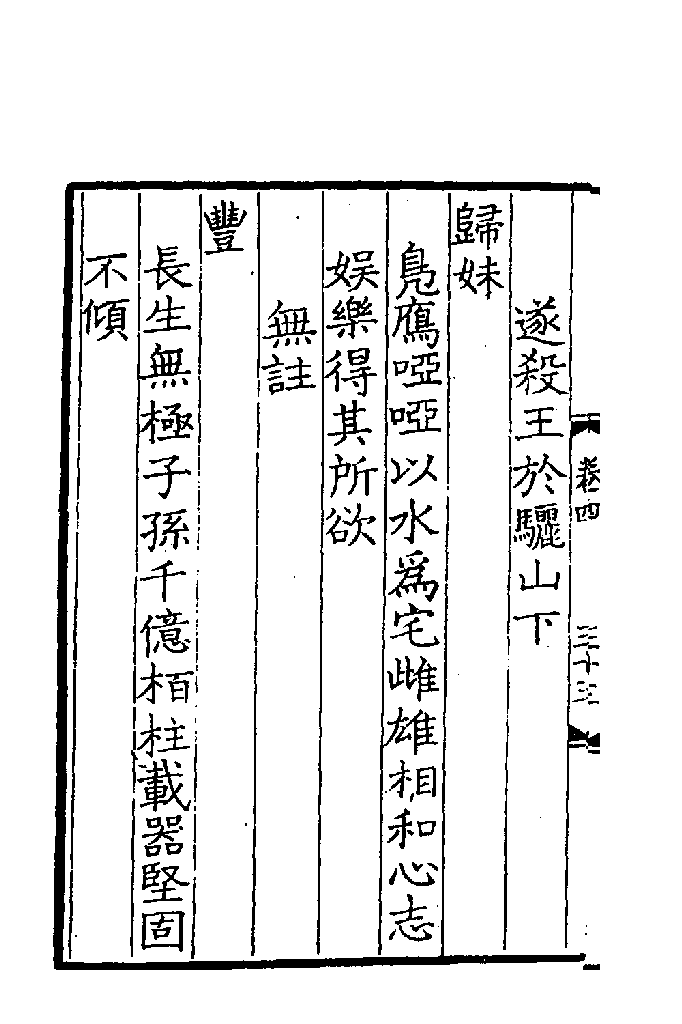 遂殺王於驪山下
歸妹
鳧鴈啞啞以水爲宅雌雄相和心志
娱樂得其所欲
無註
豐
長生無極子孫千億栢柱載器堅固
不傾
卷四
三十三